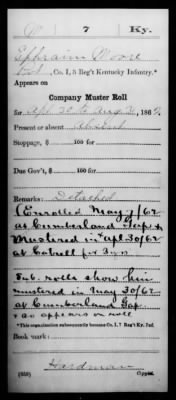 M 7 Ky.
Ephraim Moore
Pvt., Co. I, 5 Reg't Kentucky Infantry.*
Appears on
Company Muster Roll
for Apl 30 to Aug 31, 1862.
Present or absent Absent
Stoppage, $ 100 for
Due Gov't, $ 100 for
Remarks: Detached
(Enrolled May 1/62
at Cumberland Gap &
Mustered in Apl 30/62
at for 3 yrs
Sub. rolls show him
mustered in May 30/62
at Cumberland Gap
appears on roll
*This organization subsequently became Co. I, 7 Reg't Ky. Inf.
Book mark:
Hardman
(359) Copyist.